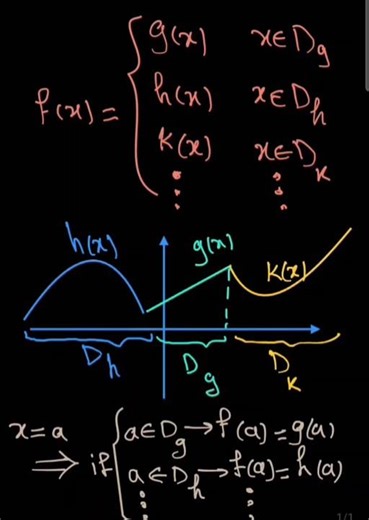 f(x) = { g(x) x∈D_g
h(x) x∈D_h
k(x) x∈D_k
⋮ ⋮
h(x) g(x) k(x)
D_h D_g D_k
x=a ⇒ if { a∈D_g → f(a)=g(a)
a∈D_h → f(a)=h(a)
⋮ ⋮
1/1